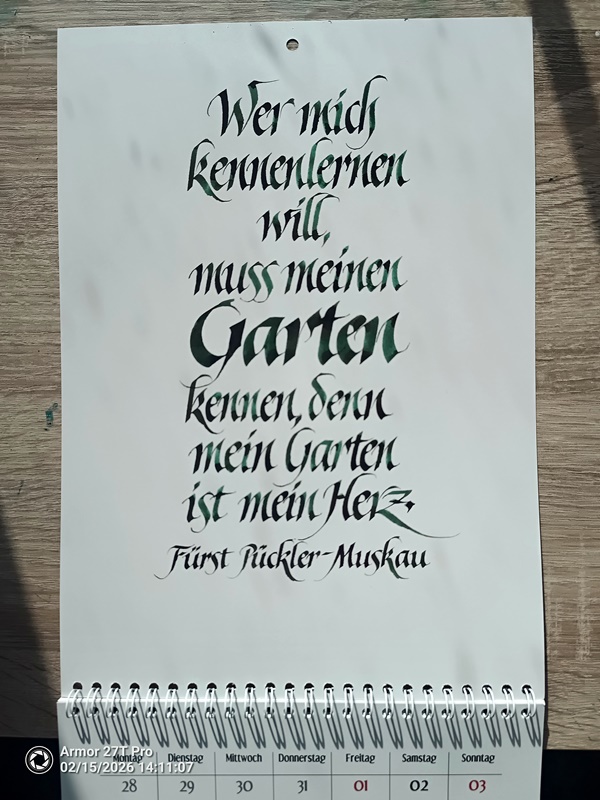 Wer mich
kennenlernen
will,
muss meinen
Garten
kennen, denn
mein Garten
ist mein Herz.
Fürst Pückler-Muskau
Montag Dienstag Mittwoch Donnerstag Freitag Samstag Sonntag
28 29 30 31 01 02 03
Armor 27T Pro
02/15/2026 14:11:07